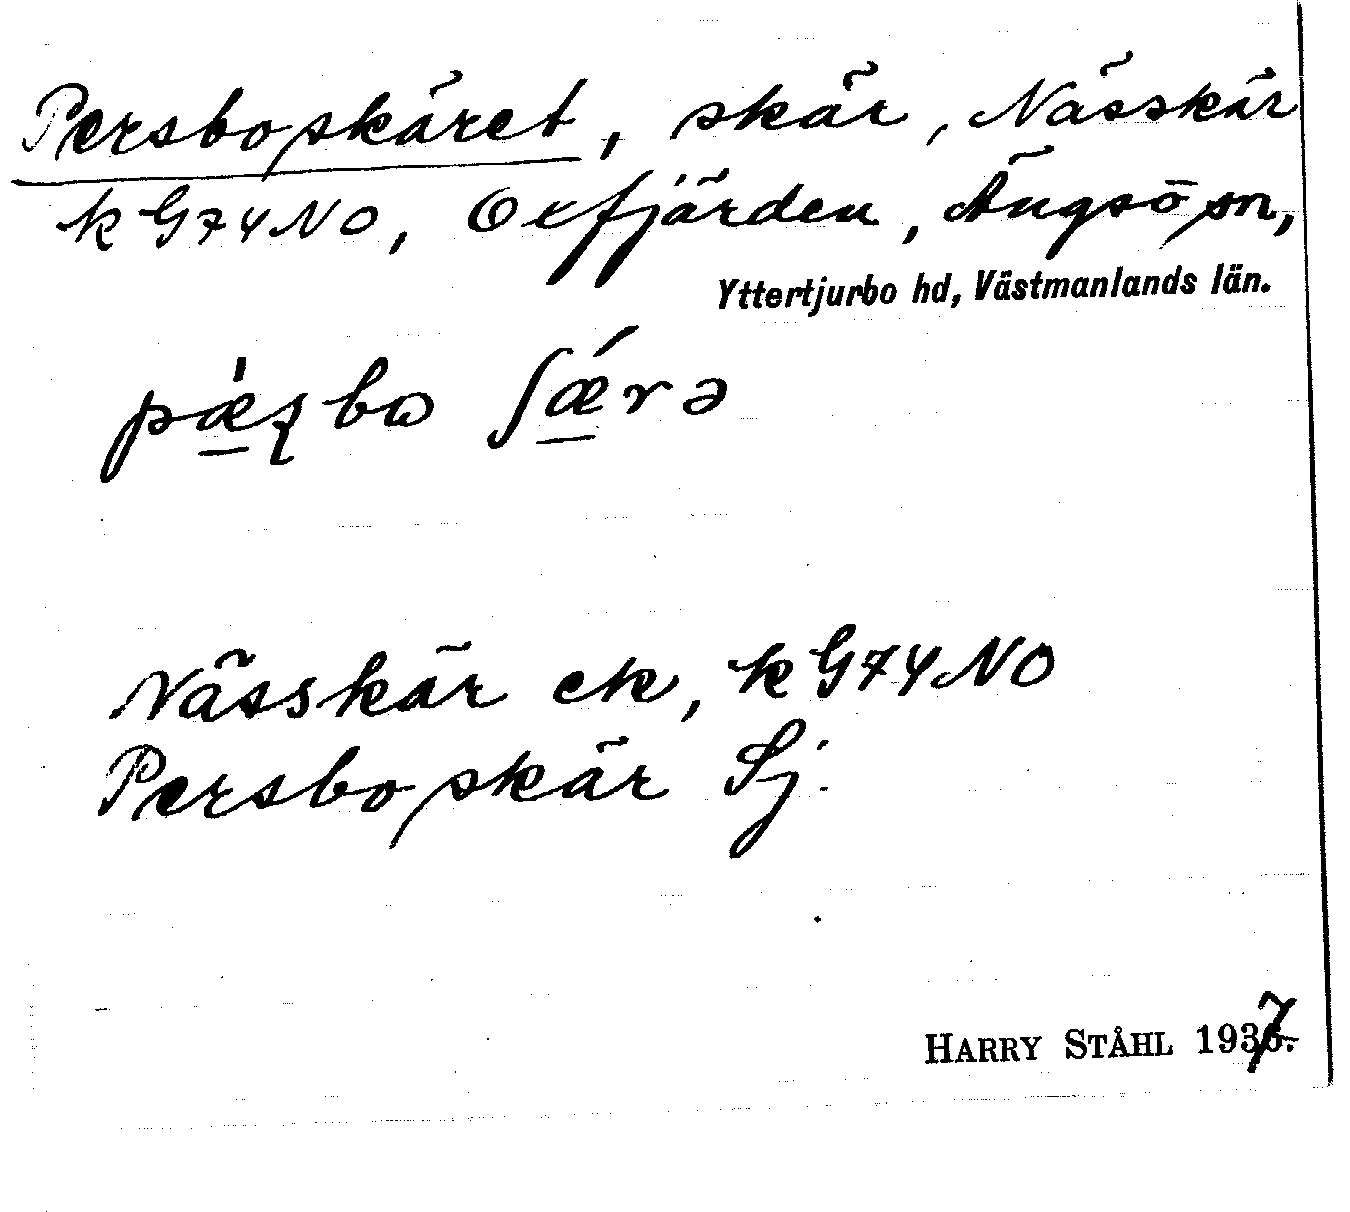 Persboskäret, skär, Nässkär
k G74NO, Oxfjärden, Ängsö sn,
Yttertjurbo hd, Västmanlands län.
Nässkär ek, k G74NO
Persboskär Sj.
HARRY STÅHL 1937.